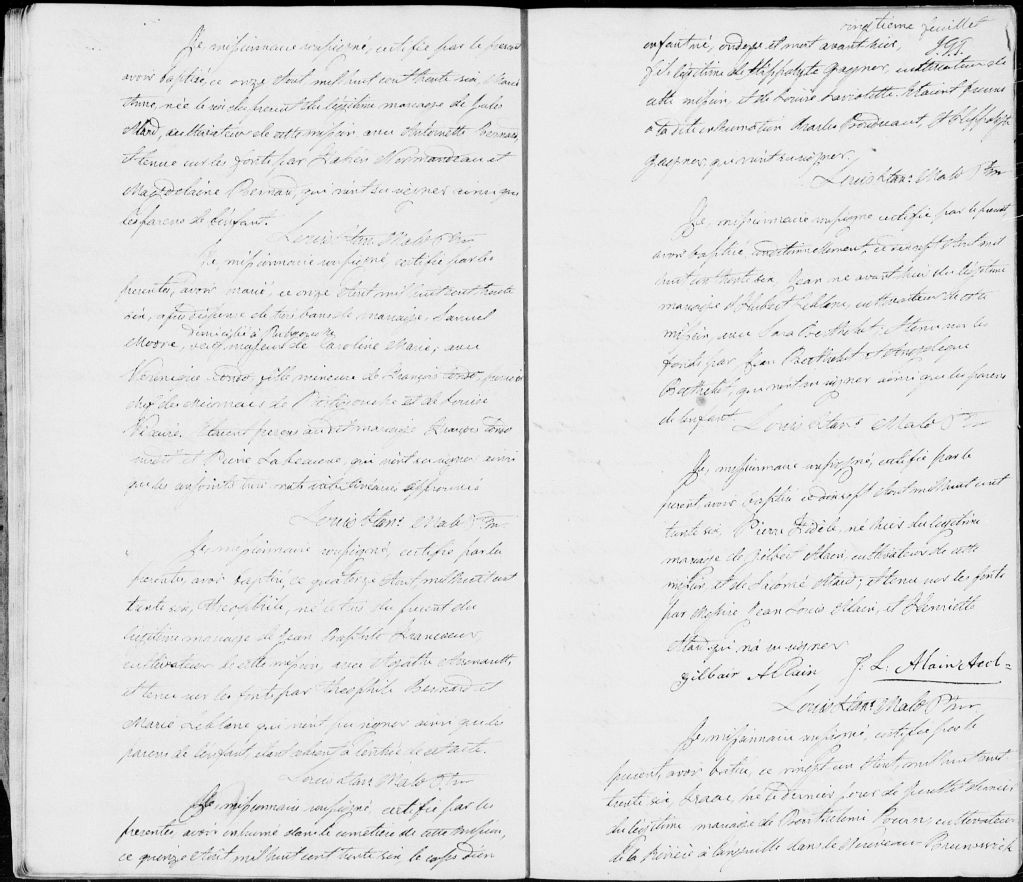 Je, missionnaire soussigné, certifie par le présent
avoir baptisé, ce onze Aout mil huit cent trente six, Marie
Anne, née le six du présent du légitime mariage de Jules
Allard, cultivateur de cette mission avec Antoinette Bernard,
tenue sur les fonts par Normandeau et
Magdelaine Bernard, qui n'ont su signer ainsi que
les parens de l'enfant.
Louis Stans Malo Ptre
Je, missionnaire soussigné certifie par les
présentes, avoir marié, ce onze Aout mil huit cent trente
six, après dispense de trois bans de mariage, Samuel
domicilié à Ristigouche
Moore, majeur de Caroline Marie; avec
Véronique Condo, fille mineure de François Condo, premier
chef des Micmacs de Ristigouche et de Louise
Vicaire. Etaient présens au dit mariage François Condo
et Pierre Labeauve, qui n'ont su signer ainsi
que les conjoints trois mots approuvés
Louis Stans Malo Ptre
Je, missionnaire soussigné, certifie par les
présentes, avoir baptisé, ce quatorze Aout mil huit cent
trente six, Théophile, né le du présent du
légitime mariage de Jean Baptiste Francoeur,
cultivateur de cette mission, avec Agathe Arsenault,
tenu sur les fonts par Théophile Bernard et
Marie Leblanc qui n'ont pu signer ainsi que les
parens de l'enfant, de cet acte.
Louis Stans Malo Ptre
Je, missionnaire soussigné certifie par les
présentes, avoir inhumé dans le cimetière de cette mission,
ce quinze Aout mil huit cent trente six, le corps d'un
vingtieme feuillet
enfant né, ondoyé et mort avant hier,
fils légitime de Hippolyte Gagner, cultivateur de
cette mission, et de Louise Laviolette. Etaient présens
à la dite inhumation Charles Proudeaux, Hippolyte
Gagner, qui n'ont su signer.
Louis Stans Malo Ptre
Je, missionnaire soussigné certifie par le présent
avoir baptisé conditionnellement, ce Aout mil
huit cent trente six, Jean né avant hier du légitime
mariage d'Hubert Leblanc, cultivateur de cette
mission, avec Sara Berthelot; tenu sur les
fonts par Jean Berthelot et Angélique
Berthelot, qui n'ont su signer ainsi que les parens
de l'enfant Louis Stans Malo Ptre
Je, missionnaire soussigné, certifie par le
présent avoir baptisé ce dix sept Aout mil huit cent
trente six, Pierre Fidèle, né hier du légitime
mariage de Gilbert Alain, cultivateur de cette
mission et de Allard; tenu sur les fonts
par Messire Jean Louis Alain, et Henriette
Allard qui n'a su signer
gilbair Allain J. L. Alain Accl-
Louis Stans Malo Ptre
Je, missionnaire soussigné, certifie par le
présent, avoir batisé, ce vingt un Aout, mil huit cent
trente six, né le dernier jour de juillet dernier
du légitime mariage de Barthelemi Poean, cultivateur
de la Rivière à l'anguille dans le Nouveau Brunswick